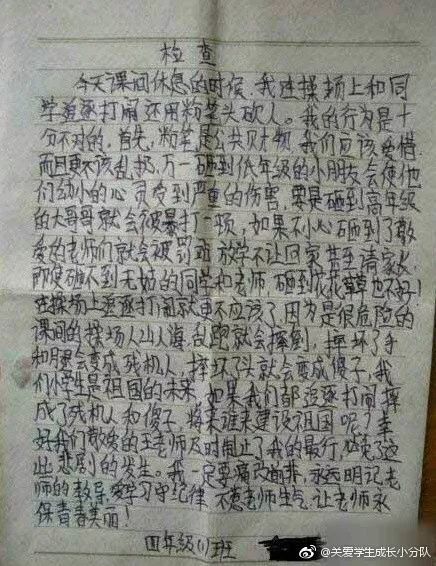 检查
今天课间休息的时候，我在操场上和同
学追逐打闹还用粉笔头砍人。我的行为是十
分不对的，首先，粉笔是公共财物，我们应该爱惜
而且更不该乱扔，万一砸到低年级的小朋友会使他
们幼小的心灵受到严重的伤害，要是砸到高年级
的大哥哥就会被暴打一场，如果不小心砸到了敬
爱的老师们就会被罚站 放学不让回家甚至请家长，
即使砸不到无辜的同学和老师 砸到花花草草也不好！
在操场上追逐打闹就更不应该了，因为是很危险的
课间的操场人山人海，乱跑就会摔到，摔坏了手
和腿会变成残机人，摔坏了头就会变成傻子，我
们小学生是祖国的未来，如果我们都追逐打闹摔
成了残机人和傻子，将来谁来建设祖国呢？幸
好我们敬爱的王老师及时制止了我的最行，避免了这
出悲剧的发生。我一定要痛改前非，永远明记老
师的教导，爱学习守纪律 不惹老师生气，让老师永
保青春美丽！
四年级(1)班
@关爱学生成长小分队